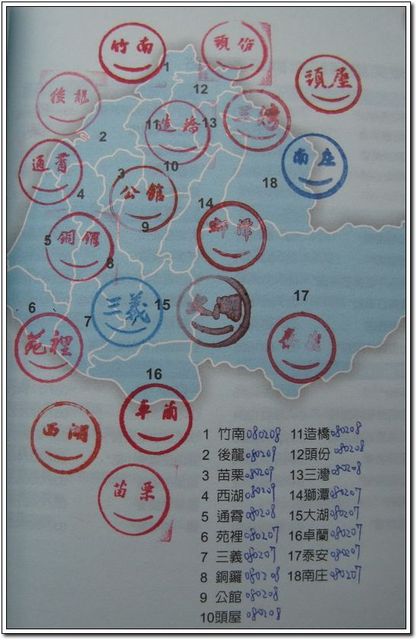 竹南
頭份
頭屋
後龍
造橋
三灣
通霄
公館
南庄
銅鑼
獅潭
三義
大湖
苑裡
泰安
西湖
卓蘭
苗栗
1
12
2
11
13
10
3
18
4
14
9
5
8
6
7
15
17
16
1 竹南 080208
2 後龍 080209
3 苗栗 080209
4 西湖 080209
5 通霄 080208
6 苑裡 080207
7 三義 080207
8 銅鑼 080208
9 公館 080208
10頭屋 080208
11造橋 080208
12頭份 080208
13三灣 080208
14獅潭 080207
15大湖 080207
16卓蘭 080207
17泰安 080207
18南庄 080207